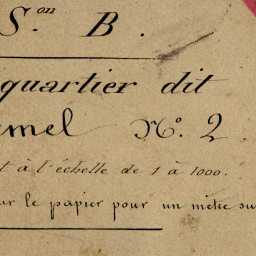 S.on B.
quartier dit
mel No. 2
t à l'échelle de 1 à 1000.
ur le papier pour un mètre su